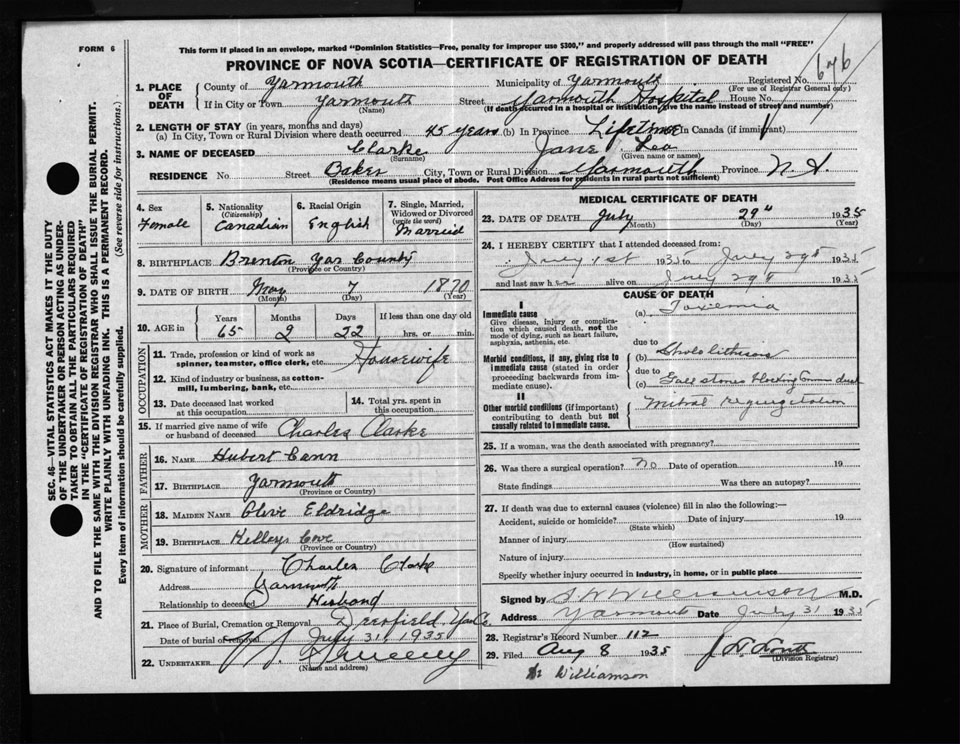 FORM 6
This form if placed in an envelope, marked "Dominion Statistics—Free, penalty for improper use $300," and properly addressed will pass through the mail "FREE"
PROVINCE OF NOVA SCOTIA—CERTIFICATE OF REGISTRATION OF DEATH
646
1. PLACE OF DEATH County of Yarmouth Municipality of Yarmouth Registered No.
(For use of Registrar General only)
If in City or Town Yarmouth Street Yarmouth Hospital House No.
(Name) (If death occurred in a hospital or institution, give the name instead of street and number)
2. LENGTH OF STAY (in years, months and days)
(a) In City, Town or Rural Division where death occurred 45 years (b) In Province Lifetime In Canada (if immigrant)
3. NAME OF DECEASED Clarke Jane Lea
(Surname) (Given name or names)
RESIDENCE No. Street Baker City, Town or Rural Division Yarmouth Province N. S.
(Residence means usual place of abode. Post Office Address for residents in rural parts not sufficient)
4. Sex Female
5. Nationality (Citizenship) Canadian
6. Racial Origin English
7. Single, Married, Widowed or Divorced (write the word) Married
8. BIRTHPLACE Brenton Yar County
(Province or Country)
9. DATE OF BIRTH May 7 1870
(Month) (Day) (Year)
10. AGE in Years Months Days If less than one day old
65 2 22 hrs. or min.
OCCUPATION
11. Trade, profession or kind of work as spinner, teamster, office clerk, etc. Housewife
12. Kind of industry or business, as cotton-mill, lumbering, bank, etc.
13. Date deceased last worked at this occupation
14. Total yrs. spent in this occupation
15. If married give name of wife or husband of deceased Charles Clarke
FATHER
16. NAME Hubert Cann
17. BIRTHPLACE Yarmouth
(Province or Country)
MOTHER
18. MAIDEN NAME Olive Eldridge
19. BIRTHPLACE Kelleys Cove
(Province or Country)
20. Signature of informant Charles Clarke
Address Yarmouth
Relationship to deceased Husband
21. Place of Burial, Cremation or Removal Deerfield, Yar Co
Date of burial or removal July 31, 1935
22. UNDERTAKER Sweeny
(Name and address)
MEDICAL CERTIFICATE OF DEATH
23. DATE OF DEATH July 29th 1935
(Month) (Day) (Year)
24. I HEREBY CERTIFY that I attended deceased from:
July 1st 1935 to July 29th 1935
and last saw her alive on July 29th 1935
CAUSE OF DEATH
I
Immediate cause (a) Toxiemia
Give disease, injury or complication which caused death, not the mode of dying, such as heart failure, asphyxia, asthenia, etc.
due to
Morbid conditions, if any, giving rise to immediate cause (stated in order proceeding backwards from immediate cause).
(b)
due to
(c) Gall stones blocking Common duct
II
Other morbid conditions (if important) contributing to death but not causally related to immediate cause.
Mitral regurgitation
25. If a woman, was the death associated with pregnancy?
26. Was there a surgical operation? no Date of operation 19
State findings Was there an autopsy?
27. If death was due to external causes (violence) fill in also the following:—
Accident, suicide or homicide? Date of injury 19
(State which)
Manner of injury
(How sustained)
Nature of injury
Specify whether injury occurred in industry, in home, or in public place
Signed by Williamson M.D.
Address Yarmouth Date July 31 1935
28. Registrar's Record Number 112
29. Filed Aug 8 1935
(Division Registrar)
Dr Williamson
SEC. 46—VITAL STATISTICS ACT MAKES IT THE DUTY
OF THE UNDERTAKER OR PERSON ACTING AS UNDER-
TAKER TO OBTAIN ALL THE PARTICULARS REQUIRED
IN THE "CERTIFICATE OF REGISTRATION OF DEATH"
AND TO FILE THE SAME WITH THE DIVISION REGISTRAR WHO SHALL ISSUE THE BURIAL PERMIT.
WRITE PLAINLY WITH UNFADING INK. THIS IS A PERMANENT RECORD.
Every item of information should be carefully supplied.
(See reverse side for instructions.)